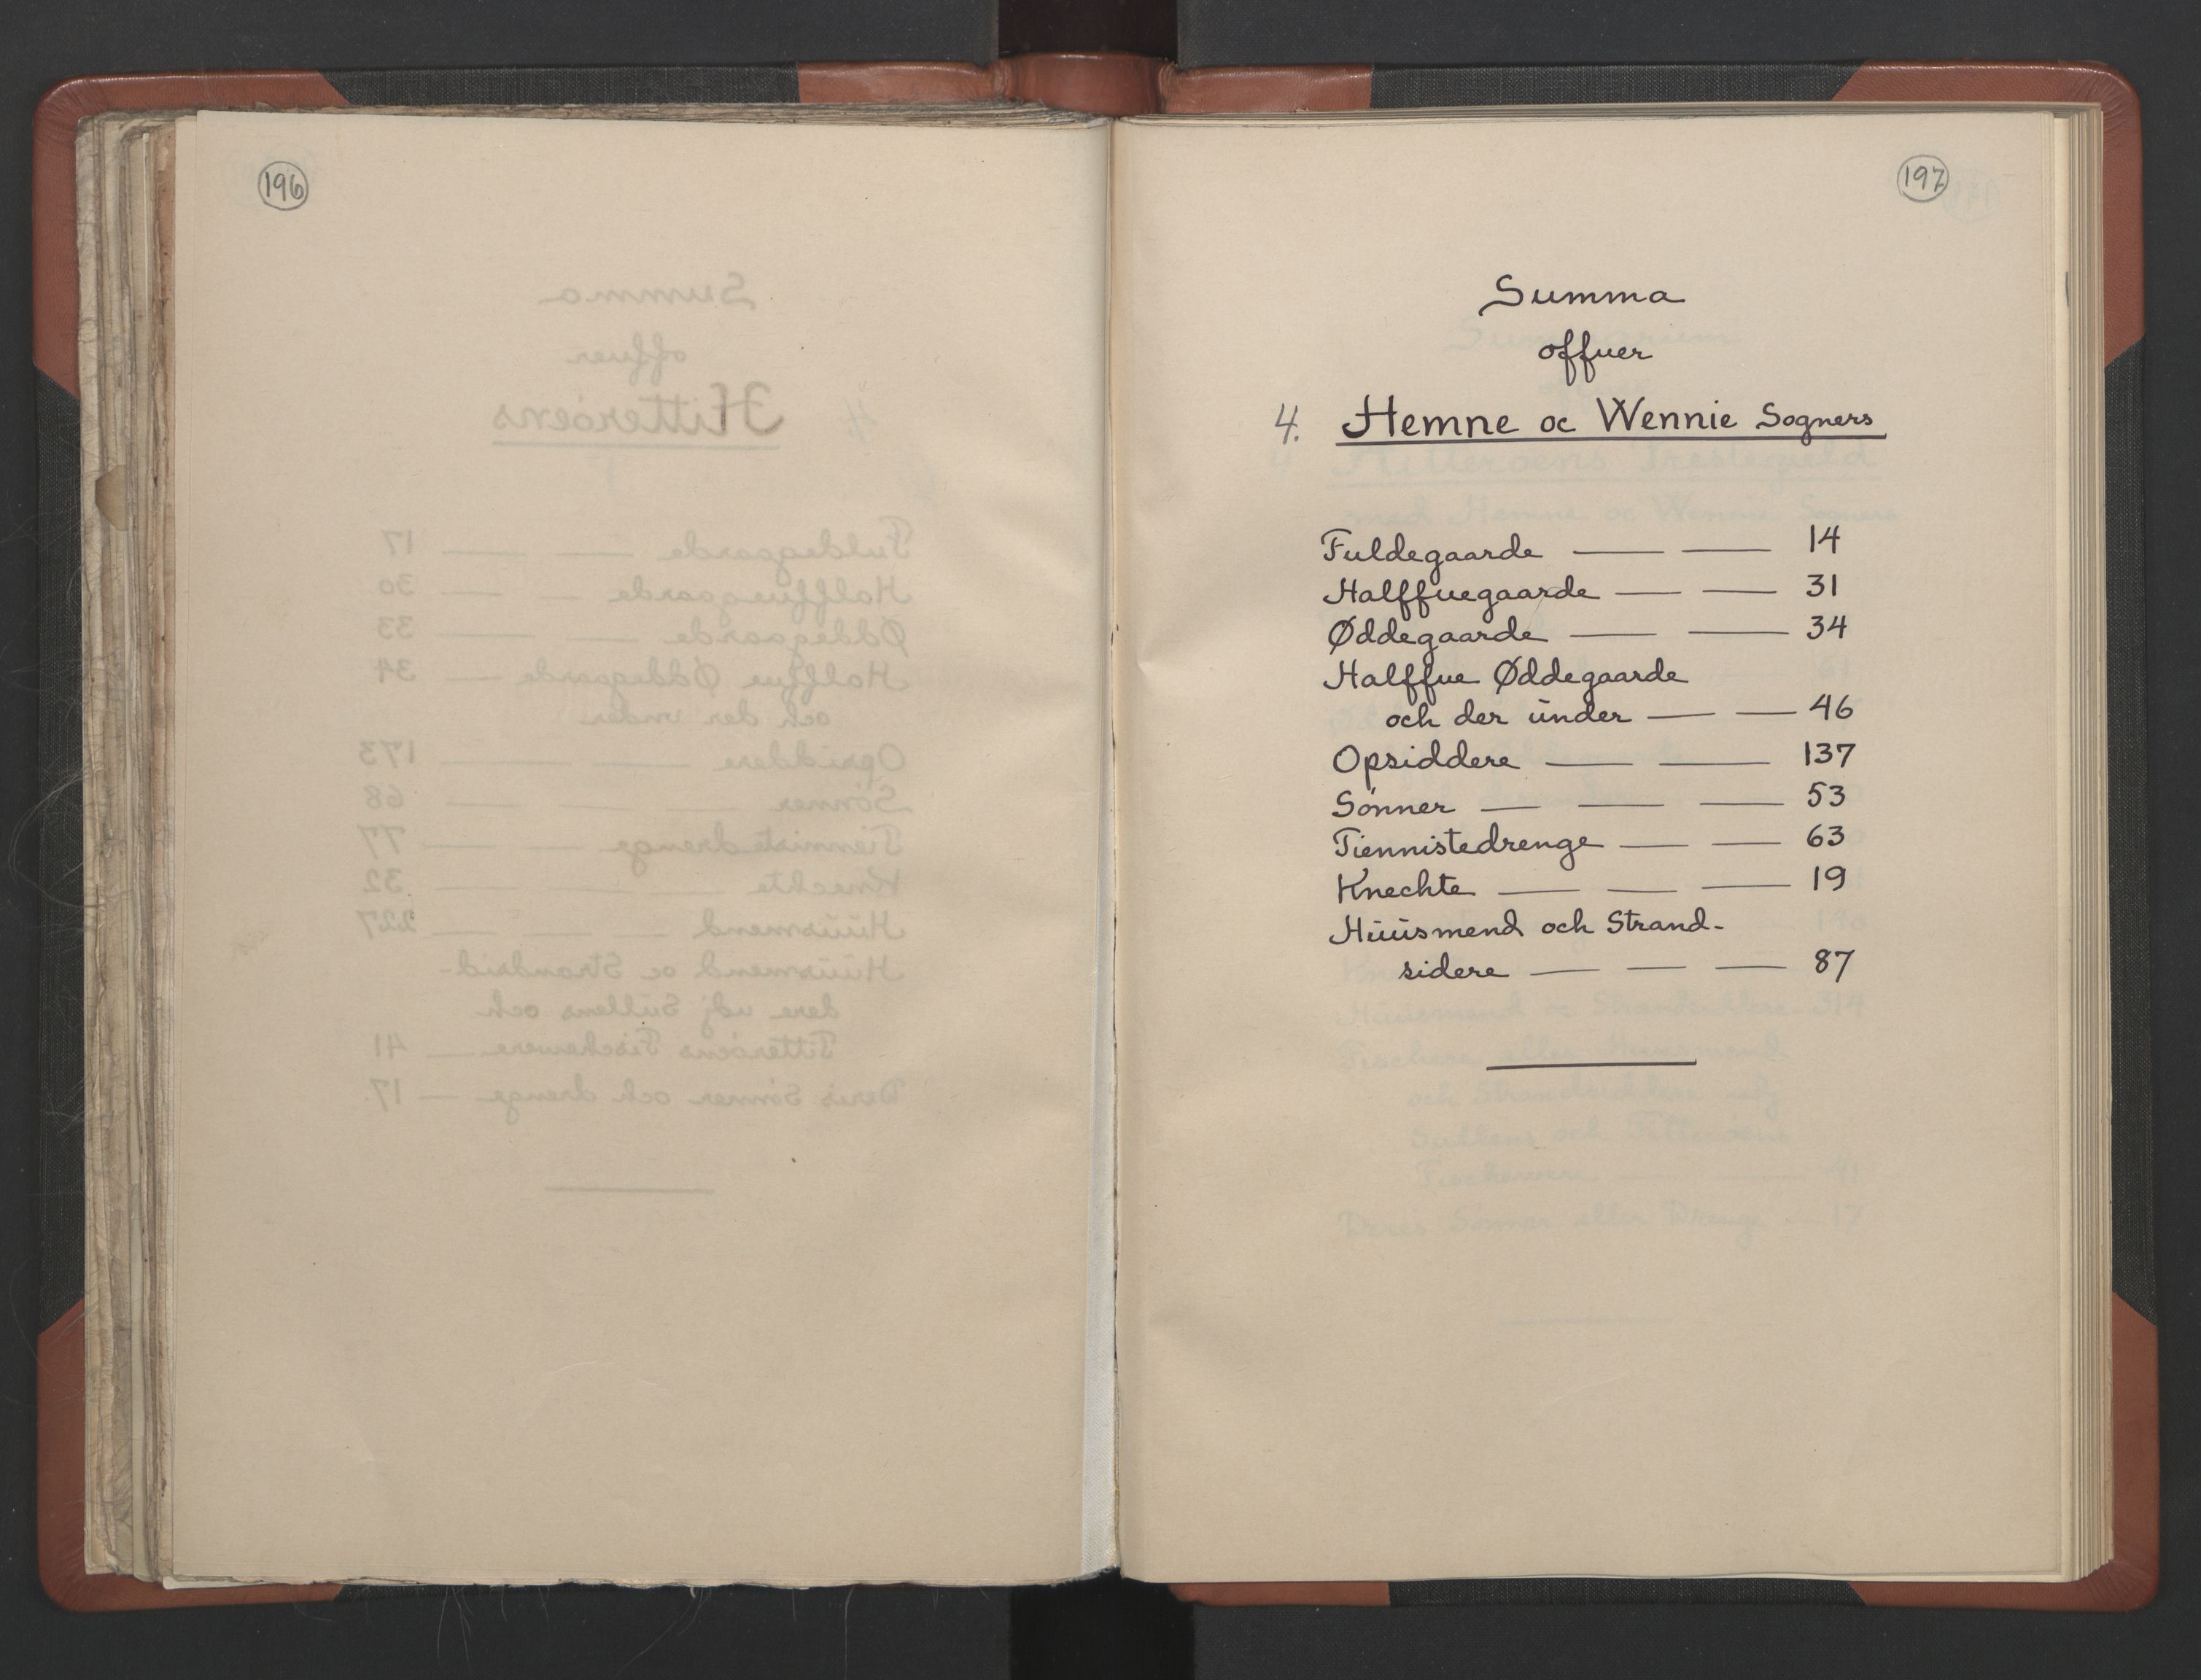 196
197
Summa
offuer
4. Hemne oc Wennie Sogners
Fuldegaarde — — 14
Halffuegaarde — — 31
Øddegaarde — — 34
Halffue Øddegaarde
och der ünder — — 46
Opsiddere — — 137
Sønner — — — 53
Tiennistedrenge — — 63
Knechte — — — 19
Hüüsmend och Strand-
sidere — — — 87